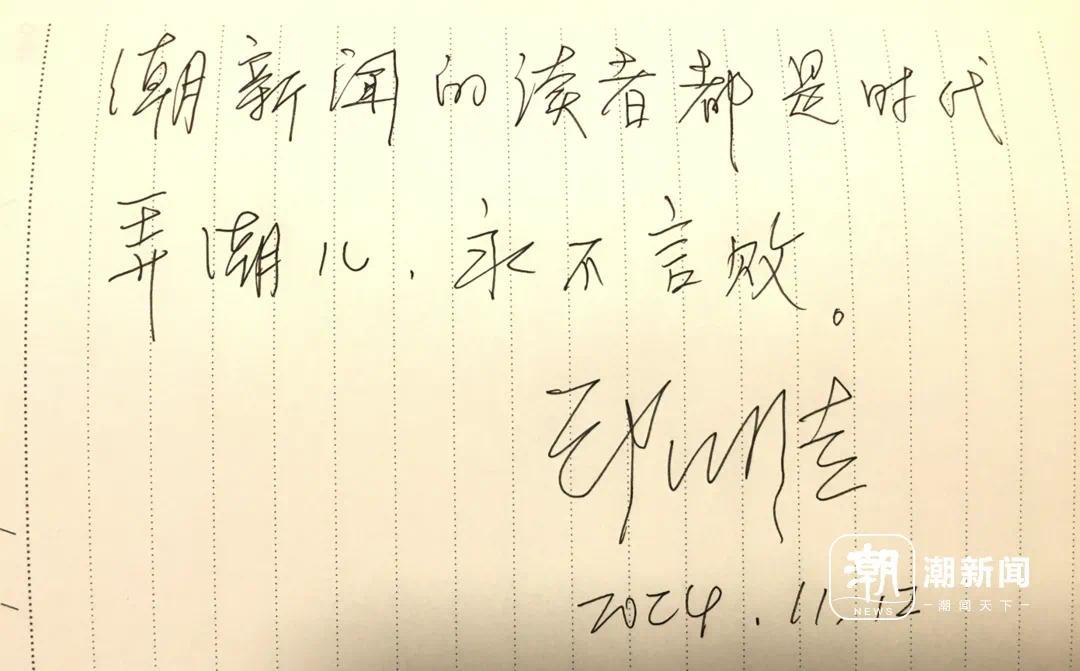 潮新闻的读者都是时代
弄潮儿，永不言败。
2024.11.12
潮 潮新闻
NEWS 潮闻天下